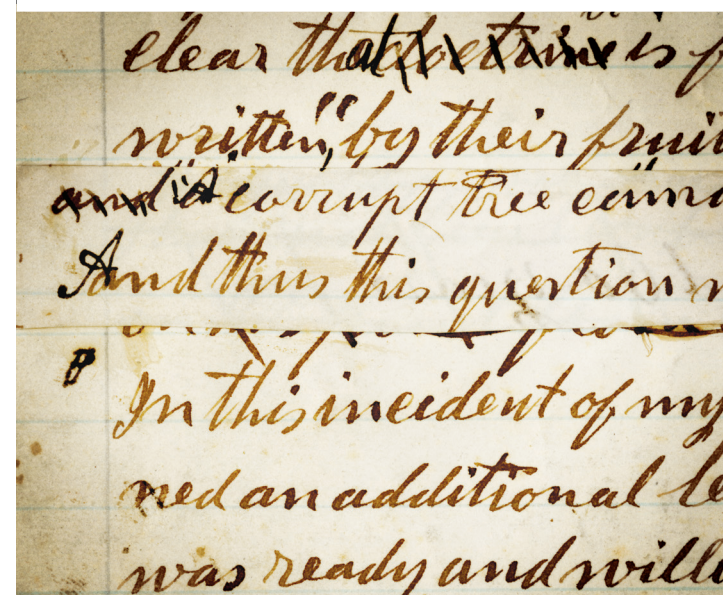 clear that doctrine is
written," by their fruit
and "A corrupt tree
And thus this question
In this incident of my
ned an additional
was ready and